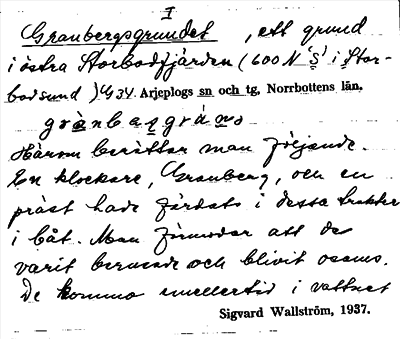 I
Granbergsgrundet, ett grund
i östra Storbodfjärden (600 N 'S' i Stor-
bodsund) G34 Arjeplogs sn och tg, Norrbottens län.
Härom berättar man följande.
En klockare, Granberg, och en
präst hade färdats i dessa trakter
i båt. Man förmodar att de
varit berusade och blivit osams.
De kommo emellertid i vattnet
Sigvard Wallström, 1937.